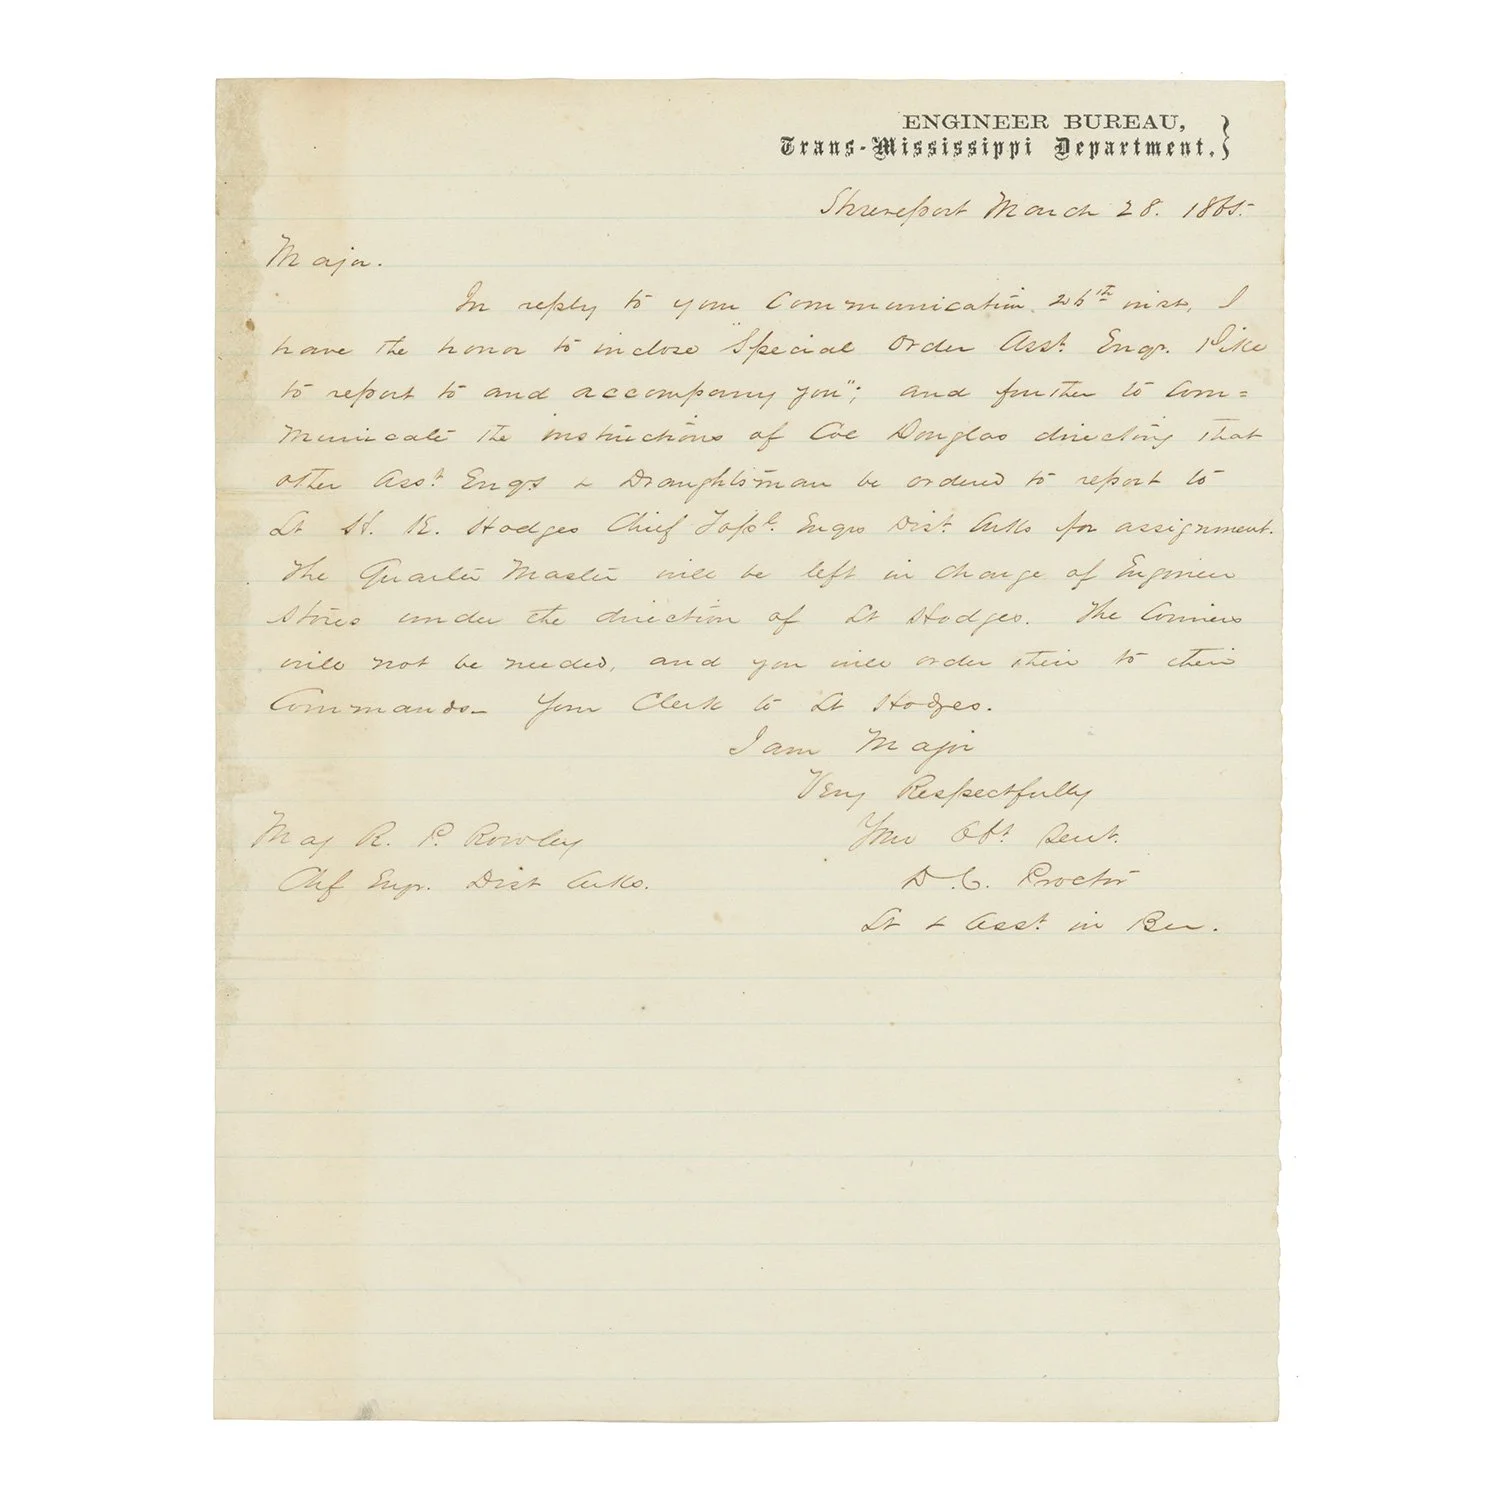 ENGINEER BUREAU,
Trans-Mississippi Department.
Shreveport March 28. 1865.
Major.
In reply to your Communication 26th inst, I
have the honor to inclose "Special Order Asst. Engr. Pike
to report to and accompany you"; and further to Com=
municate the instructions of Col Douglas directing that
other Asst Engs & Draughtsman be ordered to report to
Lt H. K. Hodges Chief Topl. Engrs Dist. Arks for assignment.
The Quarter Master will be left in charge of Engineer
Stores under the direction of Lt Hodges. The Couriers
will not be needed, and you will order them to their
Commands_ Your Clerk to Lt Hodges.
I am Major
Very Respectfully
Your Obt. Servt.
D. C. Proctor
Lt & Asst. in Bu.
Maj R. P. Rowley
Chf Engr. Dist Arks.